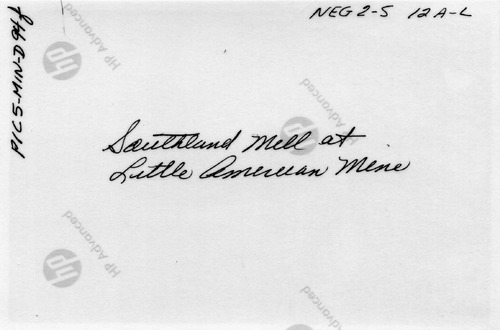 NEG 2-5 12A-L
Southland Mill at
Little American Mine
hp
HP Advanced
hp
HP Advanced
hp
HP Advanced
hp
HP Advanced
HP Advanced